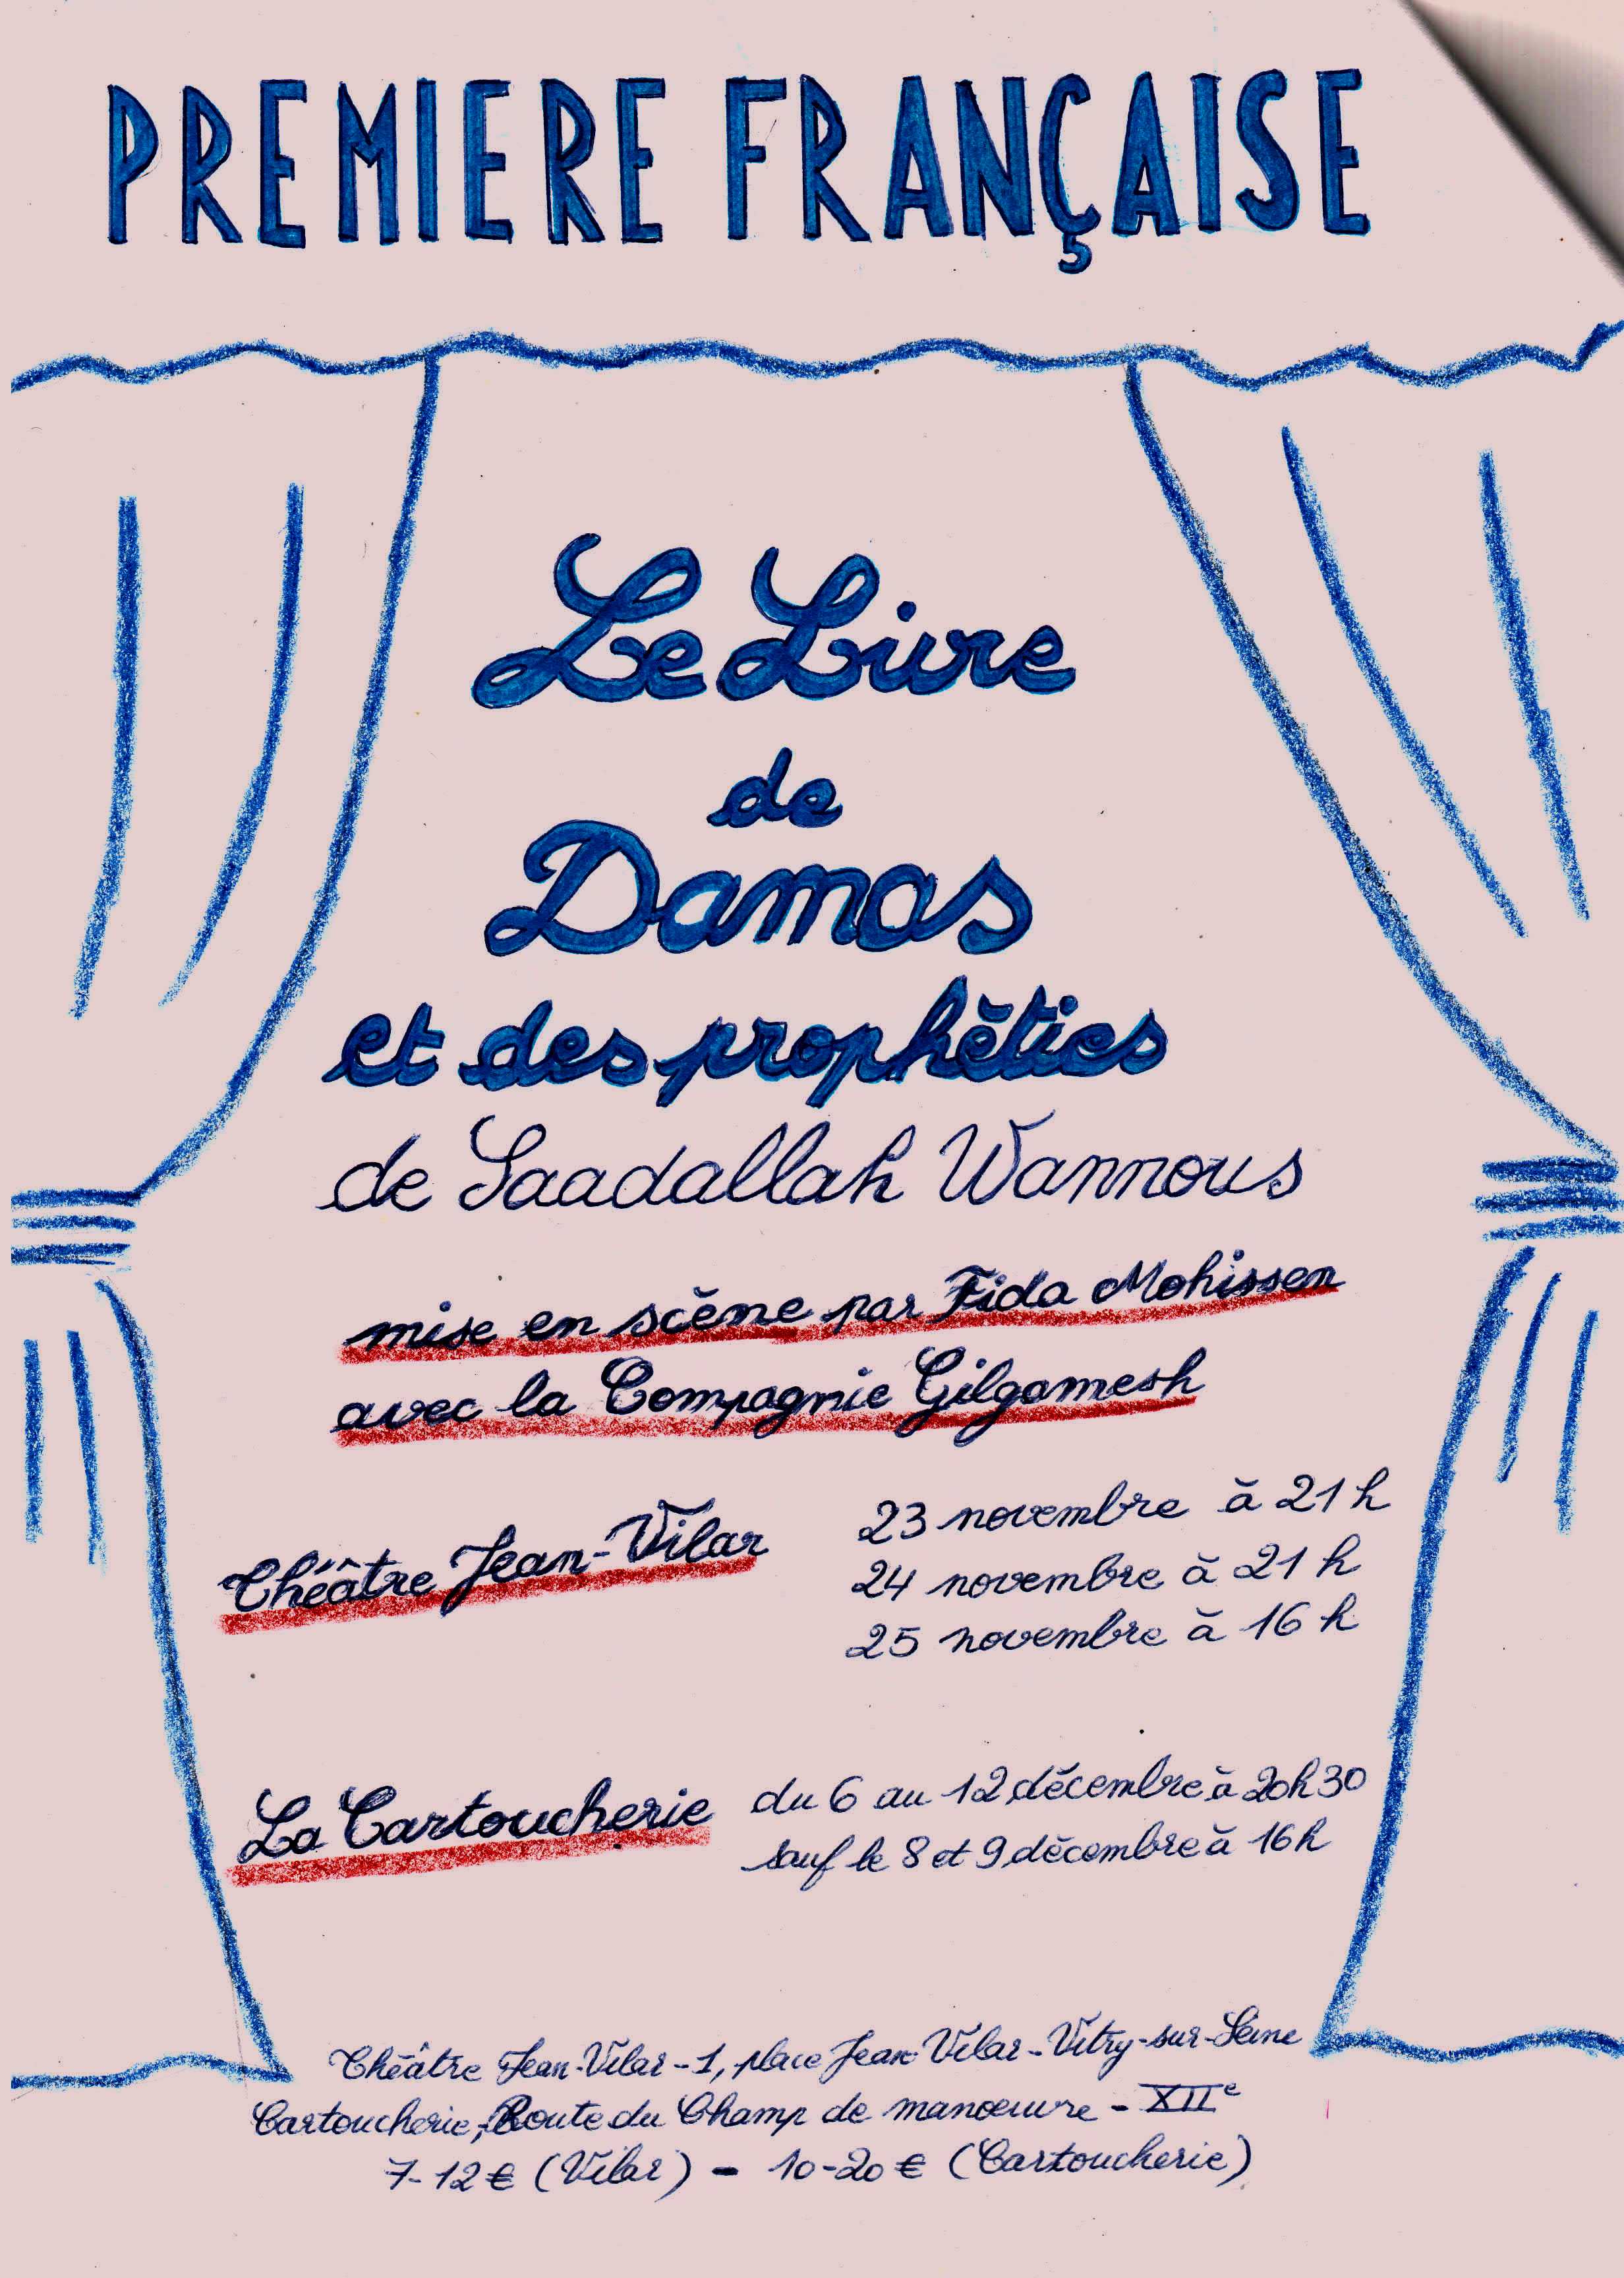 PREMIERE FRANÇAISE
Le Livre
de
Damas
et des prophéties
de Saadallah Wannous
mise en scène par Fida Mohissen
avec la Compagnie Gilgamesh
Théâtre Jean-Vilar
23 novembre à 21 h
24 novembre à 21 h
25 novembre à 16 h
La Cartoucherie
du 6 au 12 décembre à 20h30
sauf le 8 et 9 décembre à 16h
Théâtre Jean-Vilar - 1, place Jean Vilar - Vitry-sur-Seine
Cartoucherie, Route du Champ de manœuvre - XIIe
7-12 € (Vilar) - 10-20 € (Cartoucherie)